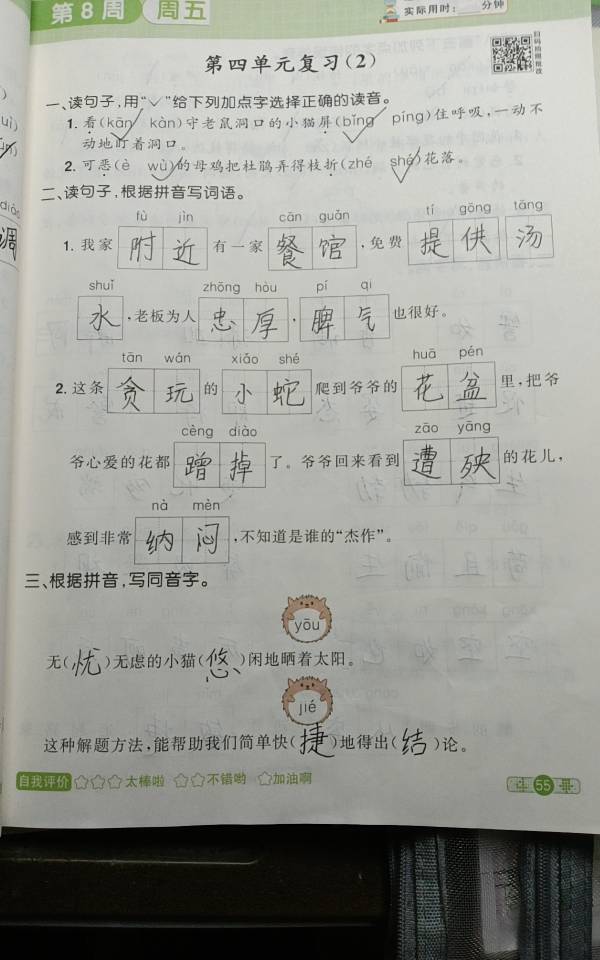 第8周 周五
实际用时： 分钟
扫码拍照批改
第四单元复习（2）
一、读句子，用“✓”给下列加点字选择正确的读音。
1. 看（kān kàn）守老鼠洞口的小猫屏（bǐng píng）住呼吸，一动不
动地盯着洞口。
2. 可恶（è wù）的母鸡把杜鹃弄得枝折（zhé shé）花落。
二、读句子，根据拼音写词语。
fù jìn cān guǎn tí gōng tāng
1. 我家 附近 有一家 餐馆 ，免费 提供 汤
shuǐ zhōng hòu pí qi
水 ，老板为人 忠厚 ， 脾气 也很好。
tān wán xiǎo shé huā pén
2. 这条 贪玩 的 小蛇 爬到爷爷的 花盆 里，把爷
cèng diào zāo yāng
爷心爱的花都 蹭掉 了。爷爷回来看到 遭殃 的花儿，
nà mèn
感到非常 纳闷 ，不知道是谁的“杰作”。
三、根据拼音，写同音字。
yōu
无（忧）无虑的小猫（悠）闲地晒着太阳。
jié
这种解题方法，能帮助我们简单快（捷）地得出（结）论。
自我评价 ☆☆☆太棒啦 ☆☆不错哟 ☆加油啊
55